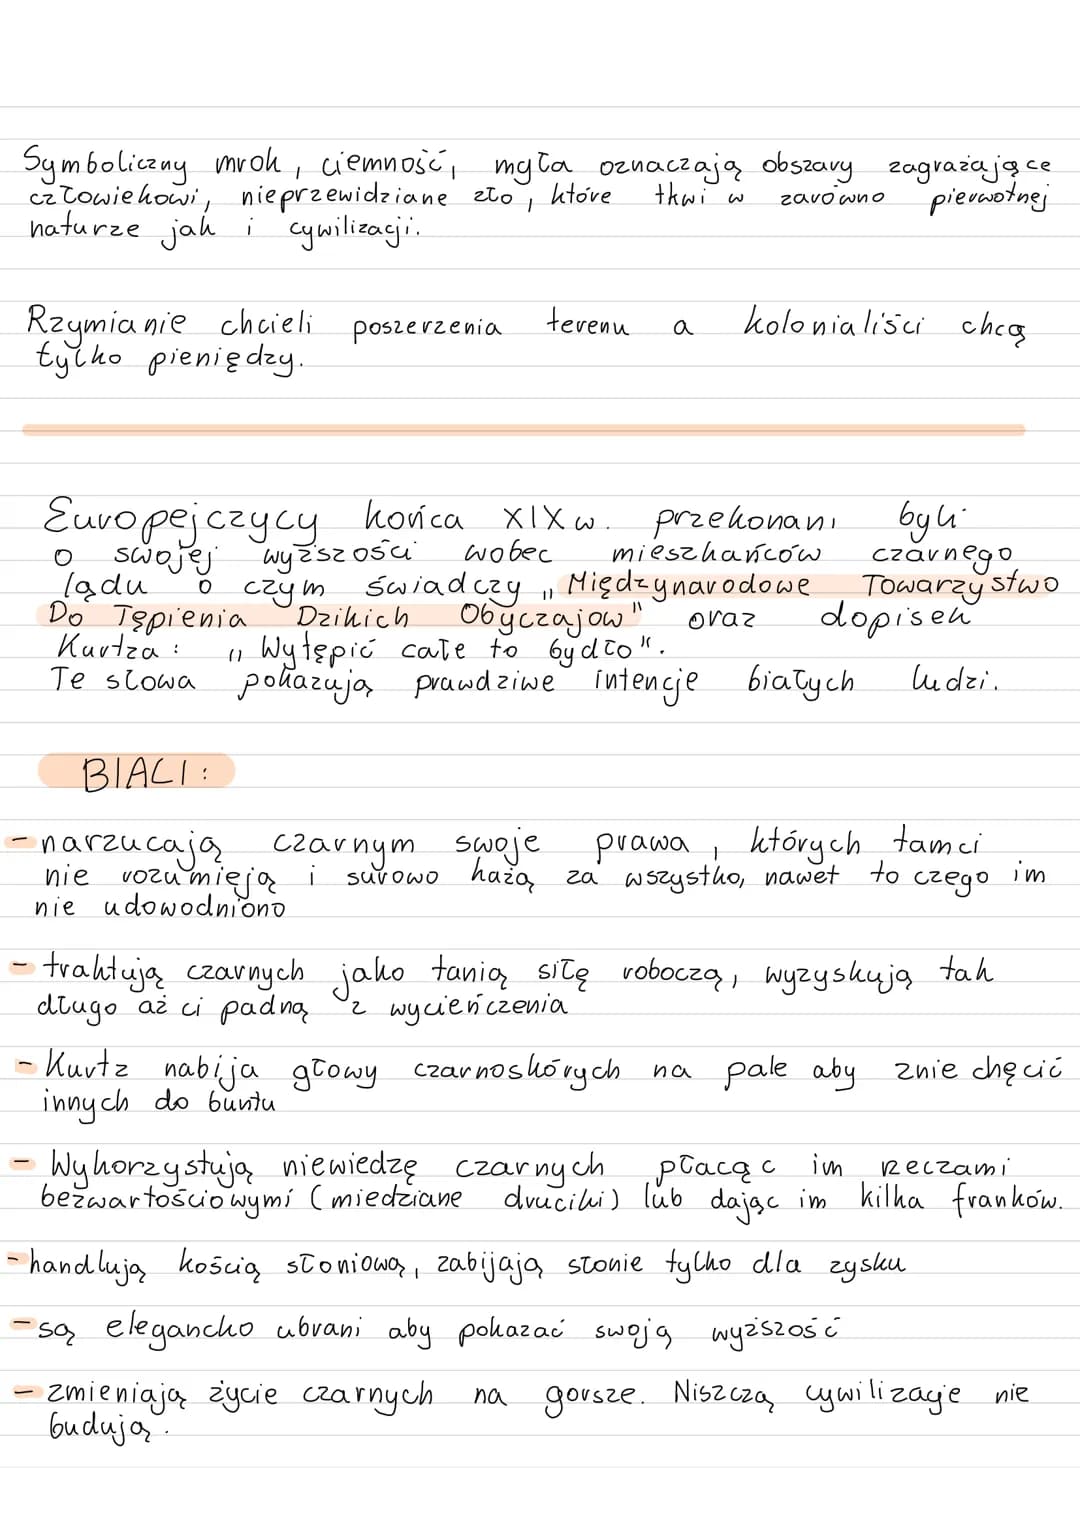 Symboliczny mrok, ciemność, mgła oznaczają obszary zagrażające
człowiekowi, nieprzewidziane zło, które tkwi w zarówno pierwotnej
naturze jak i cywilizacji.
Rzymianie chcieli poszerzenia terenu a kolonialiści chcą
tylko pieniędzy.
Europejczycy końca XIX w. przekonani byli
o swojej wyższości wobec mieszkańców czarnego
lądu o czym świadczy „Międzynarodowe Towarzystwo
Do Tępienia Dzikich Obyczajow" oraz dopisek
Kurtza: „Wytępić całe to bydło".
Te słowa pokazują prawdziwe intencje białych ludzi.
BIALI:
- narzucają czarnym swoje prawa, których tamci
nie rozumieją i surowo każą za wszystko, nawet to czego im
nie udowodniono
- traktują czarnych jako tanią siłę roboczą, wyzyskują tak
długo aż ci padną z wycieńczenia
- Kurtz nabija głowy czarnoskórych na pale aby zniechęcić
innych do buntu
- Wykorzystują niewiedzę czarnych płacąc im rzeczami
bezwartościowymi (miedziane druciki) lub dając im kilka franków.
- handlują kością słoniową, zabijają słonie tylko dla zysku
- są elegancko ubrani aby pokazać swoją wyższość
- zmieniają życie czarnych na gorsze. Niszczą cywilizacje nie
budują.